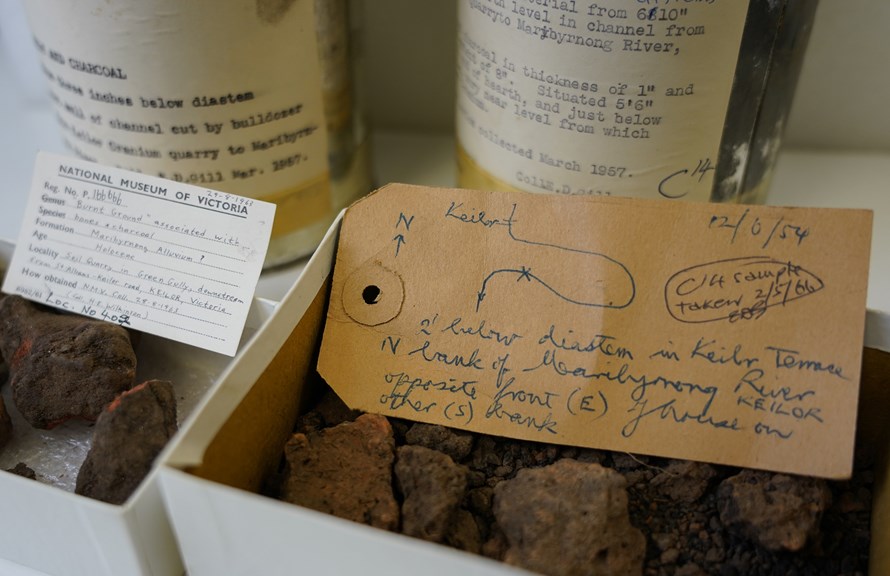 AND CHARCOAL
three inches below diastem
wall of channel cut by bulldozer
Granium quarry to Maribyrn-
E.D.Gill Mar. 1957.
material from 6'10"
level in channel from
quarryto Maribyrnong River,
charcoal in thickness of 1" and
of 8". Situated 5'6"
of hearth, and just below
near level from which
collected March 1957.
Coll E.D.Gill
C14
NATIONAL MUSEUM OF VICTORIA
29-8-1961
Reg. No. P. 166666
Genus "Burnt Ground" associated with
Species bones & charcoal
Formation Maribyrnong Alluvium ?
Age Holocene
Locality Soil Quarry, in Green Gully, downstream
from St Albans-Keilor road, KEILOR, Victoria
How obtained N.M.V. Coll. 29.8.1961
H.E. Wilkinson)
Loc. No 40
N
Keilor
12/10/54
C14 sample
taken 2/5/66
2' below diastem in Keilor Terrace
N bank of Maribyrnong River
KEILOR
opposite front (E) of house on
other (S) bank